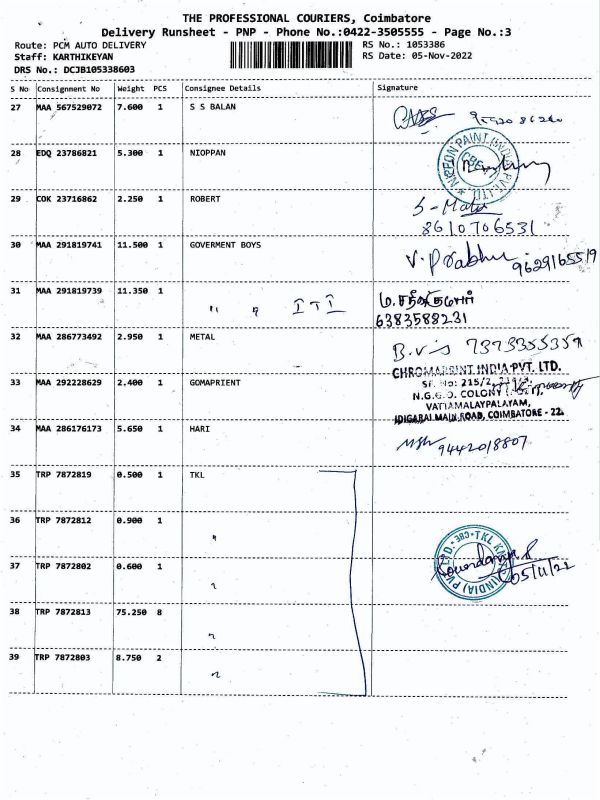 THE PROFESSIONAL COURIERS, Coimbatore
Delivery Runsheet - PNP - Phone No.:0422-3505555 - Page No.:3
Route: PCM AUTO DELIVERY
RS No.: 1053386
Staff: KARTHIKEYAN
RS Date: 05-Nov-2022
DRS No.: DCJB105338603
S No Consignment No Weight PCS Consignee Details Signature
27 MAA 567529072 7.600 1 S S BALAN
28 EDQ 23786821 5.300 1 NIOPPAN
NIPPON PAINT (INDIA) PVT. LTD.
29 COK 23716862 2.250 1 ROBERT
8610706531
30 MAA 291819741 11.500 1 GOVERMENT BOYS
V. Prabhu 9629165519
31 MAA 291819739 11.350 1 " " ITI
6383588231
32 MAA 286773492 2.950 1 METAL
B.V.S 7373355359
33 MAA 292228629 2.400 1 GOMAPRIENT
CHROMAPRINT INDIA PVT. LTD.
SF. No: 215/2,
N.G.G.O. COLONY
VATTAMALAYPALAYAM,
IDIGARAI MAIN ROAD, COIMBATORE - 22.
34 MAA 286176173 5.650 1 HARI
9442018807
35 TRP 7872819 0.500 1 TKL
36 TRP 7872812 0.900 1 "
37 TRP 7872802 0.600 1 "
CBE TKL (INDIA) PVT. LTD.
05/11/22
38 TRP 7872813 75.250 8 "
39 TRP 7872803 8.750 2 "